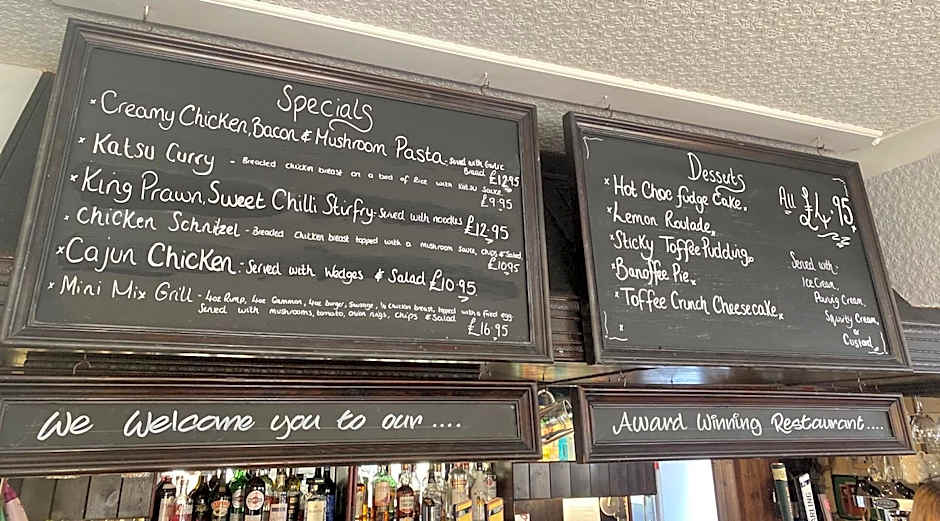 Specials
× Creamy Chicken, Bacon & Mushroom Pasta - Served with Garlic
Bread £12.95
× Katsu Curry - Breaded chicken breast on a bed of Rice with Katsu Sauce
£9.95
× King Prawn, Sweet Chilli Stirfry - Served with noodles £12.95
× Chicken Schnitzel - Breaded chicken breast topped with a mushroom sauce, chips & Salad
£10.95
× Cajun Chicken - Served with Wedges & Salad £10.95
× Mini Mix Grill - 4oz Rump, 4oz Gammon, 4oz burger, Sausage, ½ chicken breast, topped with a fried egg
Served with mushrooms, tomato, Onion rings, chips & Salad
£16.95
Desserts
× Hot Choc fudge Cake ×
× Lemon Roulade ×
× Sticky Toffee Pudding
× Banoffee Pie ×
× Toffee Crunch Cheesecake ×
All £4.95
Served with -
Ice Cream,
Pouring Cream,
Squirty Cream,
or
Custard
We Welcome you to our ....
Award Winning Restaurant....